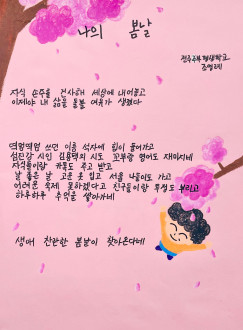 나의 봄날
전주주부평생학교
조영례
자식 손주들 건사해 세상에 내어놓고
이제야 내 삶을 돌볼 여유가 생겼다
쓰던 이름 석자에 힘이 들어가고
섬진강 시인 김용택의 시도 꼬부랑 영어도 재미지네
자식들이랑 카톡도 주고 받고
날 좋은 날 고운 옷 입고 서울 나들이도 가고
어려운 숙제 못하겠다고 친구들이랑 투정도 부리고
하루하루 추억을 쌓아가네
생애 찬란한 봄날이 찾아온다네